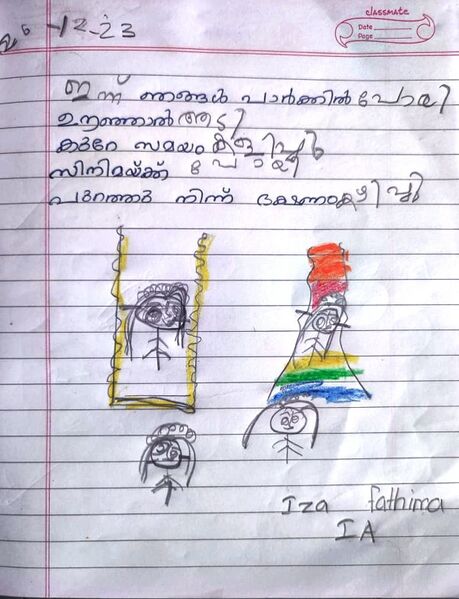 classmate
Date
Page
26-12-23
ഇന്ന് ഞങ്ങൾ പാർക്കിൽ പോയി
ഊഞ്ഞാൽ ആടി
കുറേ സമയം കളിച്ചു
സിനിമയ്ക്ക് പോയി
പുറത്തു നിന്ന് ഭക്ഷണം കഴിച്ചു
Iza fathima
IA